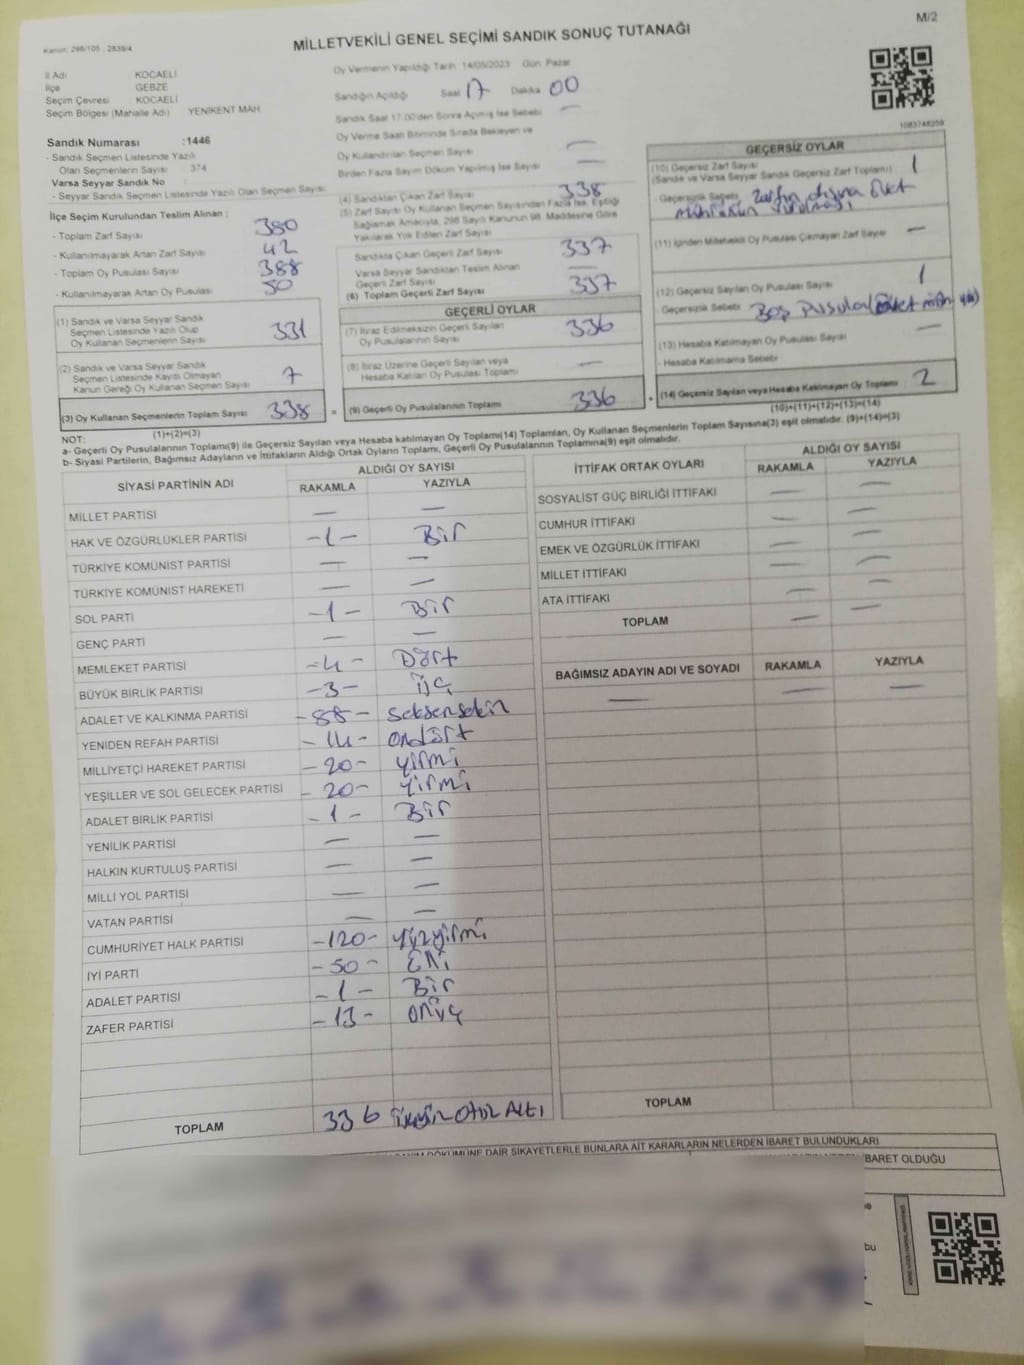 M/2
Kanun: 298/105 , 2839/4
MİLLETVEKİLİ GENEL SEÇİMİ SANDIK SONUÇ TUTANAĞI
İl Adı : KOCAELİ
İlçe : GEBZE
Seçim Çevresi : KOCAELİ
Seçim Bölgesi (Mahalle Adı) : YENİKENT MAH.
Sandık Numarası :1446
- Sandık Seçmen Listesinde Yazılı
Olan Seçmenlerin Sayısı : 374
Varsa Seyyar Sandık No :
- Seyyar Sandık Seçmen Listesinde Yazılı Olan Seçmen Sayısı:
İlçe Seçim Kurulundan Teslim Alınan :
- Toplam Zarf Sayısı 380
- Kullanılmayarak Artan Zarf Sayısı 42
- Toplam Oy Pusulası Sayısı 388
- Kullanılmayarak Artan Oy Pusulası 50
(1) Sandık ve Varsa Seyyar Sandık
Seçmen Listesinde Yazılı Olup
Oy Kullanan Seçmenlerin Sayısı 331
(2) Sandık ve Varsa Seyyar Sandık
Seçmen Listesinde Kayıtlı Olmayan
Kanun Gereği Oy Kullanan Seçmen Sayısı 7
(3) Oy Kullanan Seçmenlerin Toplam Sayısı 338 =
(1)+(2)=(3)
Oy Vermenin Yapıldığı Tarih : 14/05/2023 Gün: Pazar
Sandığın Açıldığı Saat 17 Dakika 00
Sandık Saat 17.00'den Sonra Açılmış İse Sebebi —
Oy Verme Saati Bitiminde Sırada Bekleyen ve
Oy Kullandırılan Seçmen Sayısı —
Birden Fazla Sayım Döküm Yapılmış İse Sayısı —
(4) Sandıktan Çıkan Zarf Sayısı 338
(5) Zarf Sayısı Oy Kullanan Seçmen Sayısından Fazla İse, Eşitliği
Sağlamak Amacıyla, 298 Sayılı Kanunun 98. Maddesine Göre
Yakılarak Yok Edilen Zarf Sayısı
Sandıkta Çıkan Geçerli Zarf Sayısı 337
Varsa Seyyar Sandıktan Teslim Alınan
Geçerli Zarf Sayısı —
(6) Toplam Geçerli Zarf Sayısı 337
GEÇERLİ OYLAR
(7) İtiraz Edilmeksizin Geçerli Sayılan
Oy Pusulalarının Sayısı 336
(8) İtiraz Üzerine Geçerli Sayılan veya
Hesaba Katılan Oy Pusulası Toplamı —
(9) Geçerli Oy Pusulalarının Toplamı 336 +
1083748259
GEÇERSİZ OYLAR
(10) Geçersiz Zarf Sayısı
(Sandık ve Varsa Seyyar Sandık Geçersiz Zarf Toplamı) 1
- Geçersizlik Sebebi: Zarfın dışına Evet
(11) İçinden Milletvekili Oy Pusulası Çıkmayan Zarf Sayısı —
(12) Geçersiz Sayılan Oy Pusulası Sayısı 1
- Geçersizlik Sebebi: Boş Pusula
(13) Hesaba Katılmayan Oy Pusulası Sayısı —
- Hesaba Katılmama Sebebi
(14) Geçersiz Sayılan veya Hesaba Katılmayan Oy Toplamı 2
(10)+(11)+(12)+(13)=(14)
NOT:
a- Geçerli Oy Pusulalarının Toplamı(9) ile Geçersiz Sayılan veya Hesaba katılmayan Oy Toplamı(14) Toplamları, Oy Kullanan Seçmenlerin Toplam Sayısına(3) eşit olmalıdır. (9)+(14)=(3)
b- Siyasi Partilerin, Bağımsız Adayların ve İttifakların Aldığı Ortak Oyların Toplamı, Geçerli Oy Pusulalarının Toplamına(9) eşit olmalıdır.
SİYASİ PARTİNİN ADI ALDIĞI OY SAYISI
RAKAMLA YAZIYLA
MİLLET PARTİSİ — —
HAK VE ÖZGÜRLÜKLER PARTİSİ -1- Bir
TÜRKİYE KOMÜNİST PARTİSİ — —
TÜRKİYE KOMÜNİST HAREKETİ — —
SOL PARTİ -1- Bir
GENÇ PARTİ — —
MEMLEKET PARTİSİ -4- Dört
BÜYÜK BİRLİK PARTİSİ -3- üç
ADALET VE KALKINMA PARTİSİ -88- seksensekiz
YENİDEN REFAH PARTİSİ -14- ondört
MİLLİYETÇİ HAREKET PARTİSİ -20- yirmi
YEŞİLLER VE SOL GELECEK PARTİSİ -20- yirmi
ADALET BİRLİK PARTİSİ -1- Bir
YENİLİK PARTİSİ — —
HALKIN KURTULUŞ PARTİSİ — —
MİLLİ YOL PARTİSİ — —
VATAN PARTİSİ — —
CUMHURİYET HALK PARTİSİ -120- yüzyirmi
İYİ PARTİ -50- Elli
ADALET PARTİSİ -1- Bir
ZAFER PARTİSİ -13- onüç
TOPLAM 336
İTTİFAK ORTAK OYLARI ALDIĞI OY SAYISI
RAKAMLA YAZIYLA
SOSYALİST GÜÇ BİRLİĞİ İTTİFAKI — —
CUMHUR İTTİFAKI — —
EMEK VE ÖZGÜRLÜK İTTİFAKI — —
MİLLET İTTİFAKI — —
ATA İTTİFAKI — —
TOPLAM — —
BAĞIMSIZ ADAYIN ADI VE SOYADI RAKAMLA YAZIYLA
— — —
TOPLAM
DÖKÜMÜNE DAİR ŞİKAYETLERLE BUNLARA AİT KARARLARIN NELERDEN İBARET BULUNDUKLARI
İBARET OLDUĞU